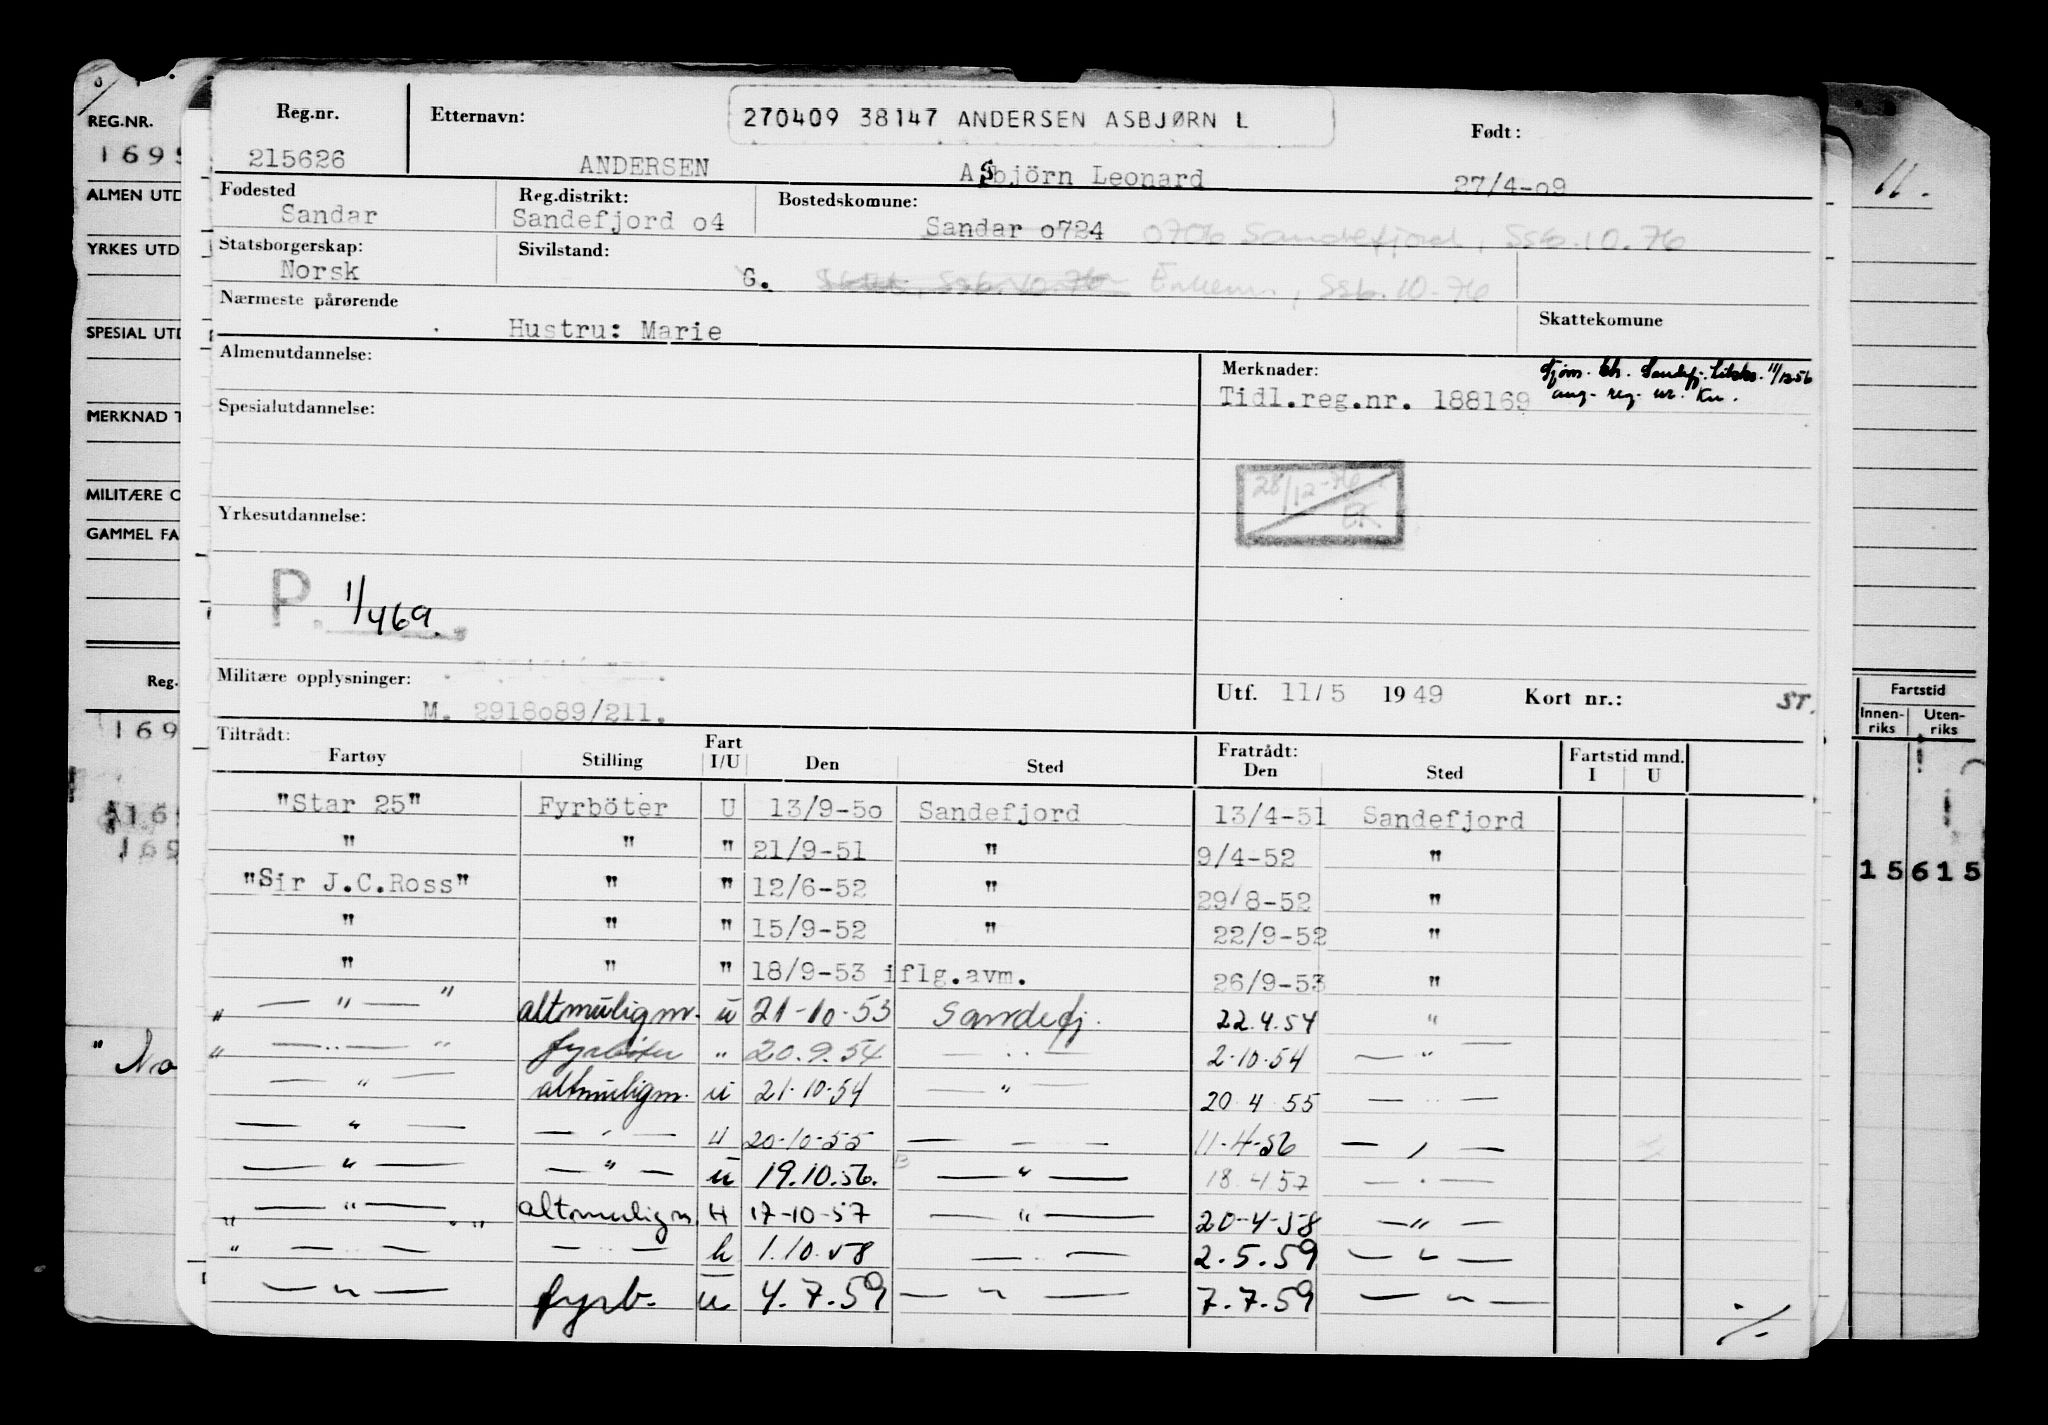 REG.NR.
169
ALMEN UTD
YRKES UTD
SPESIAL UTD
MERKNAD T
MILITÆRE O
GAMMEL FA
Reg.
169
A16
169
" No
Reg.nr. Etternavn: 270409 38147 ANDERSEN ASBJØRN L Født:
215626 ANDERSEN Asbjörn Leonard 27/4-o9
Fødested Reg.distrikt: Bostedskomune:
Sandar Sandefjord o4 Sandar o724 0706 Sandefjord, Ssb.10.76
Statsborgerskap: Sivilstand:
Norsk G. Ssb. 10.76 Enkem., Ssb.10-76
Nærmeste pårørende Skattekomune
Hustru: Marie
Almenutdannelse: Merknader:
Tidl.reg.nr. 188169
11/12 56
ang. reg. nr.
Spesialutdannelse:
28/12-76
Yrkesutdannelse:
P. 1/469.
Militære opplysninger: Utf. 11/5 1949 Kort nr.: ST.
M. 2918o89/211.
Tiltrådt: Fart Fratrådt: Fartstid mnd.
Fartøy Stilling I/U Den Sted Den Sted I U
"Star 25" Fyrböter U 13/9-5o Sandefjord 13/4-51 Sandefjord
" " " 21/9-51 " 9/4-52 "
"Sir J.C.Ross" " " 12/6-52 " 29/8-52 "
" " " 15/9-52 " 22/9-52 "
" " " 18/9-53 iflg.avm. 26/9-53 "
" — " — " altmuligm. u 21-10-53 Sandefj. 22.4.54 "
" — " — " fyrbøter " 20.9.54 — " — 2-10-54 — " —
— " — altmuligm. u 21-10-54 — " — 20 4 55 — " —
— " — — " — u 20-10-55 — " — 11-4-56 — " —
— " — — " — u 19.10.56. — " — 18.4 57 — " —
" — " — " altmuligm. u 17-10-57 — " — 20-4-58 — " —
" — " — — " — u 1.10.58 — " — 2.5.59 — " —
— " — fyrb. u 4.7.59 — " — 7.7.59 — " —
./.
11.
Fartstid
Innen-riks Uten-riks
15 615